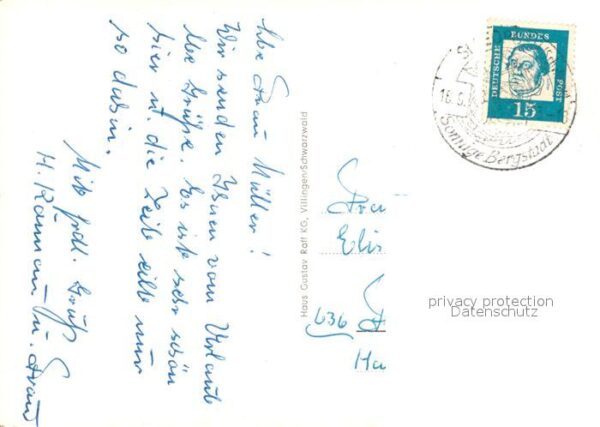 Liebe Frau Müller!
Wir senden Ihnen vom Urlaub
liebe Grüße. Es ist sehr schön
hier u. die Zeit eilt nur
so dahin.
Mit frdl. Gruß
H. u. Frau
Haus Gustav Raff KG, Villingen/Schwarzwald
DEUTSCHE BUNDESPOST
15
16.9.
Sonnige Bergstadt
Frau
Elis
636
Ha
privacy protection
Datenschutz